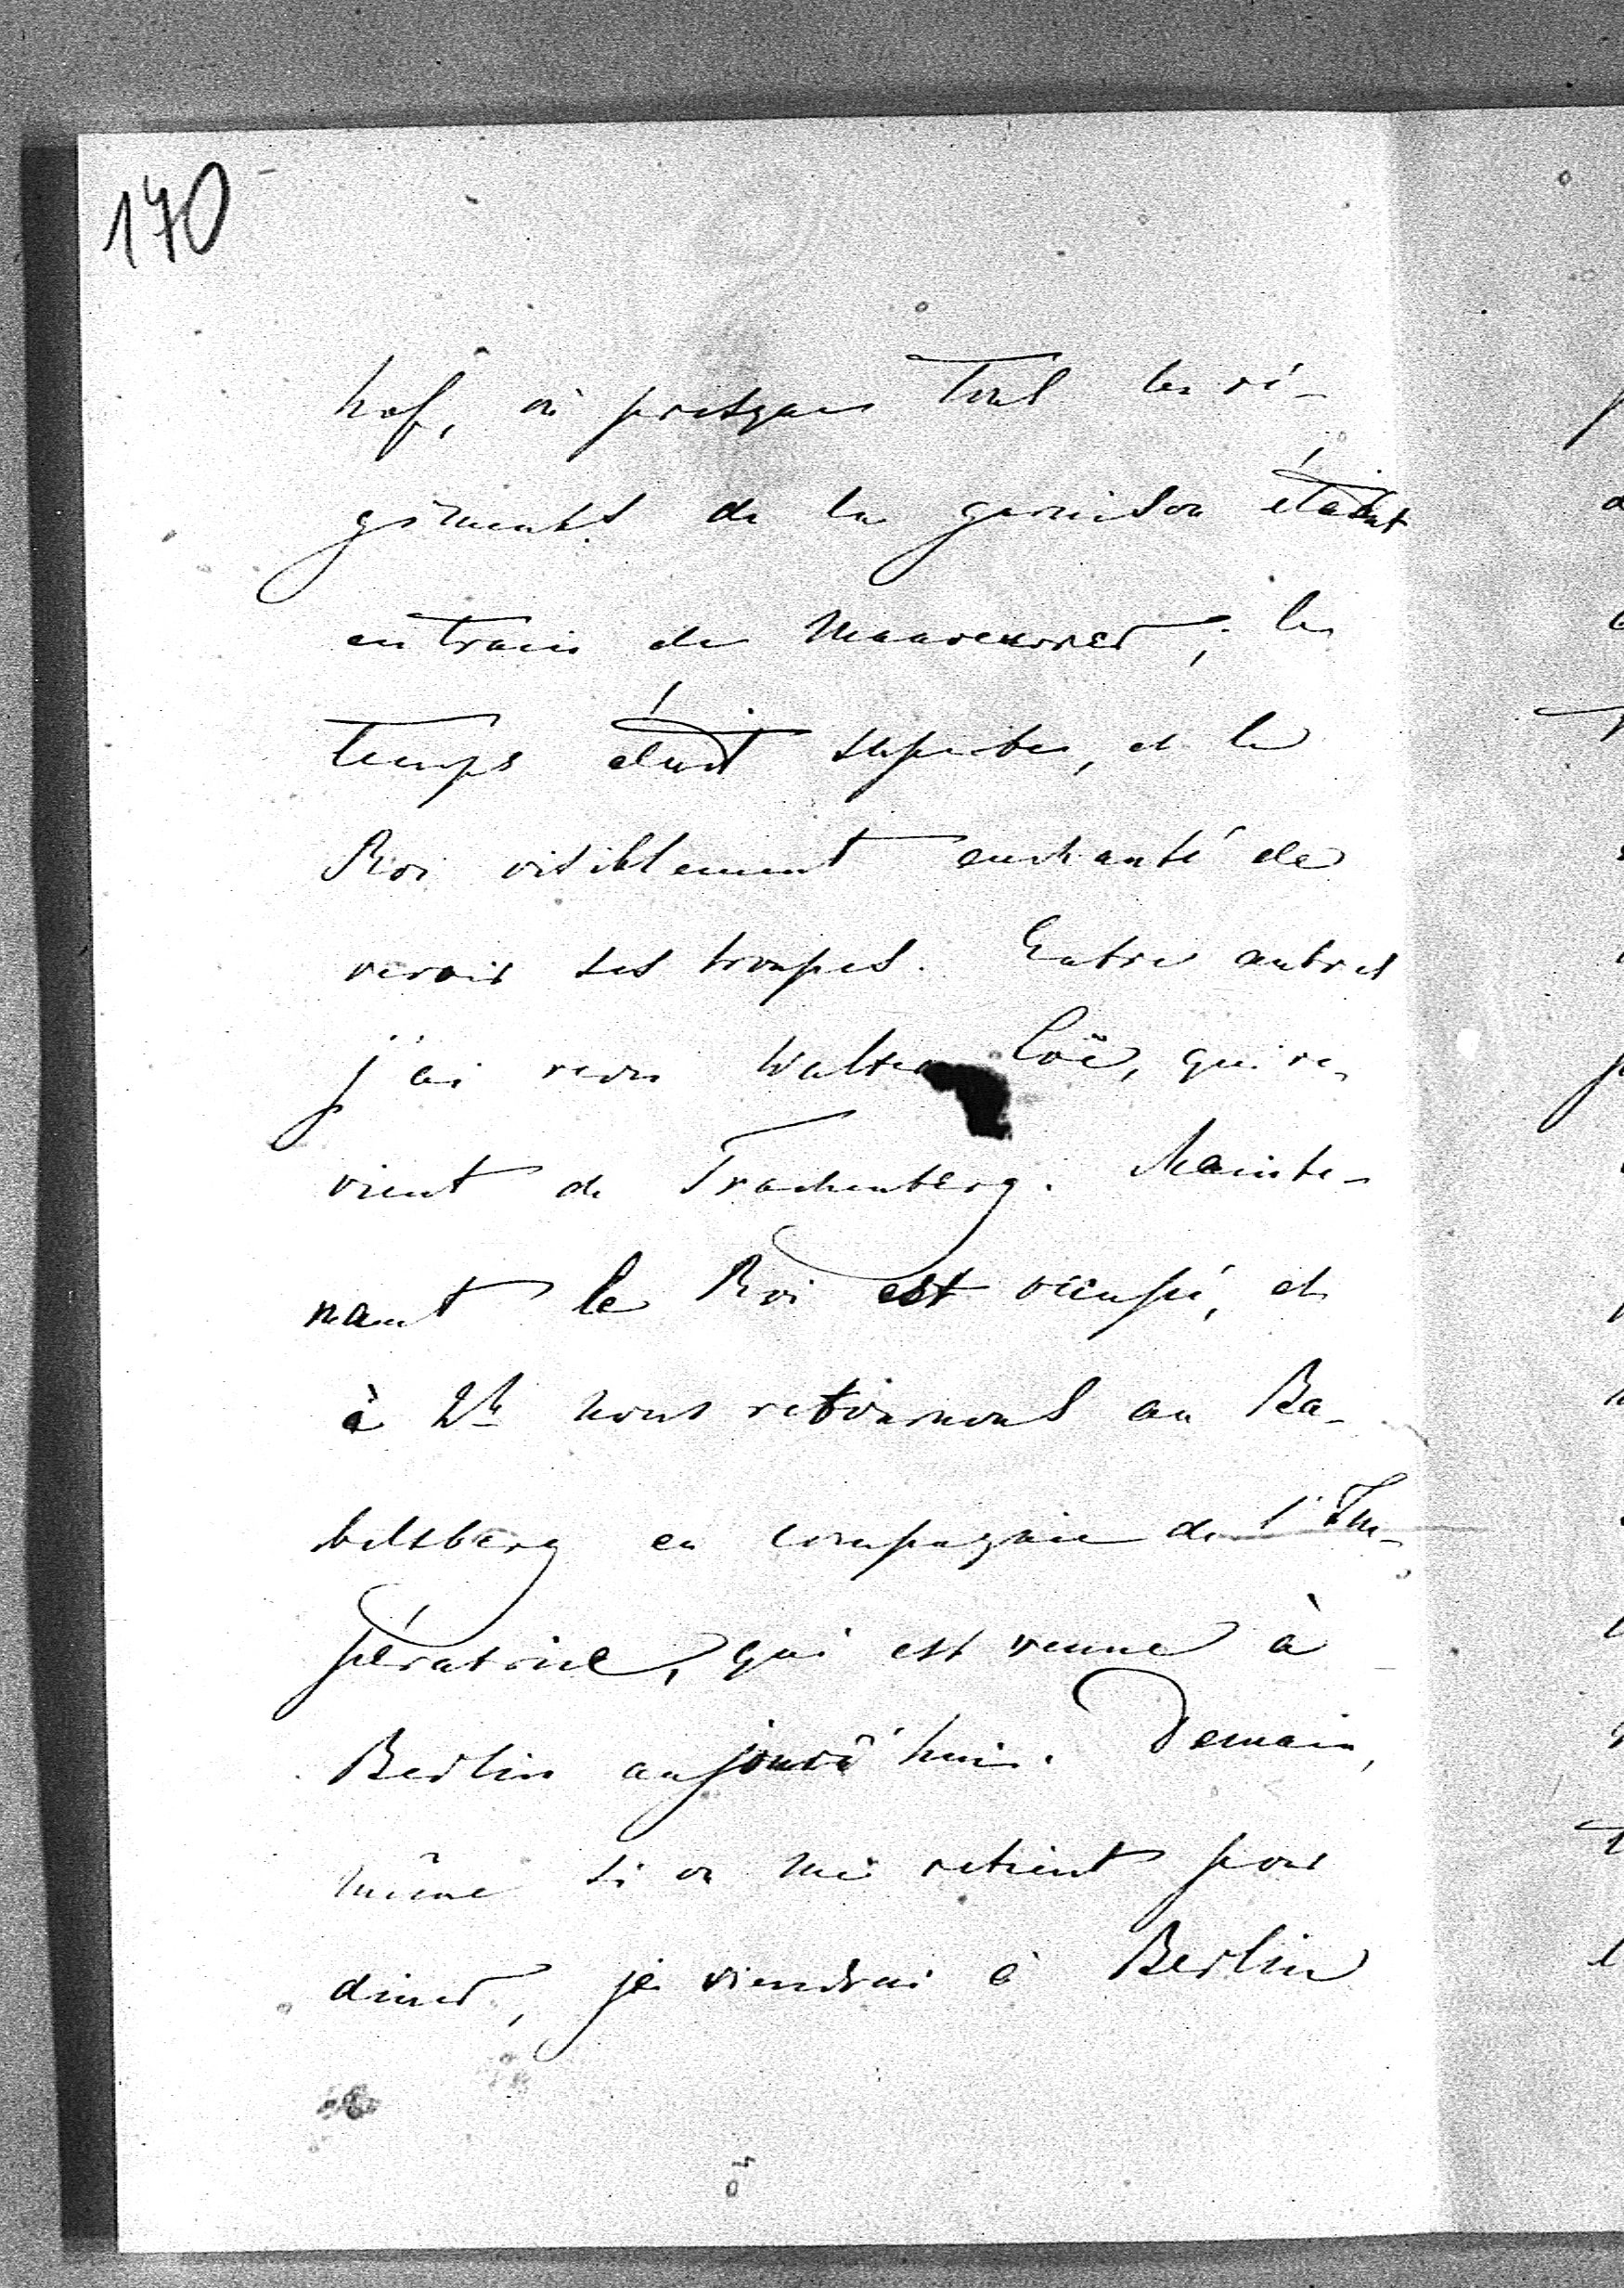 170
hof, où presque tous les ré-
giments de la garnison étaient
en train de manoeuvrer; le
temps était superbe, et le
Roi visiblement enchanté de
revoir ses troupes. Entre autres
j'ai revu Walter Loë, qui re-
vient de Trachenberg. Mainte-
nant le Roi est occupé, et
à 2h nous retournons au Ba-
belsberg en compagnie de l'Im-
pératrice, qui est venue à
Berlin aujourd'hui. Demain,
même si on me retient pour
diner, je viendrai à Berlin